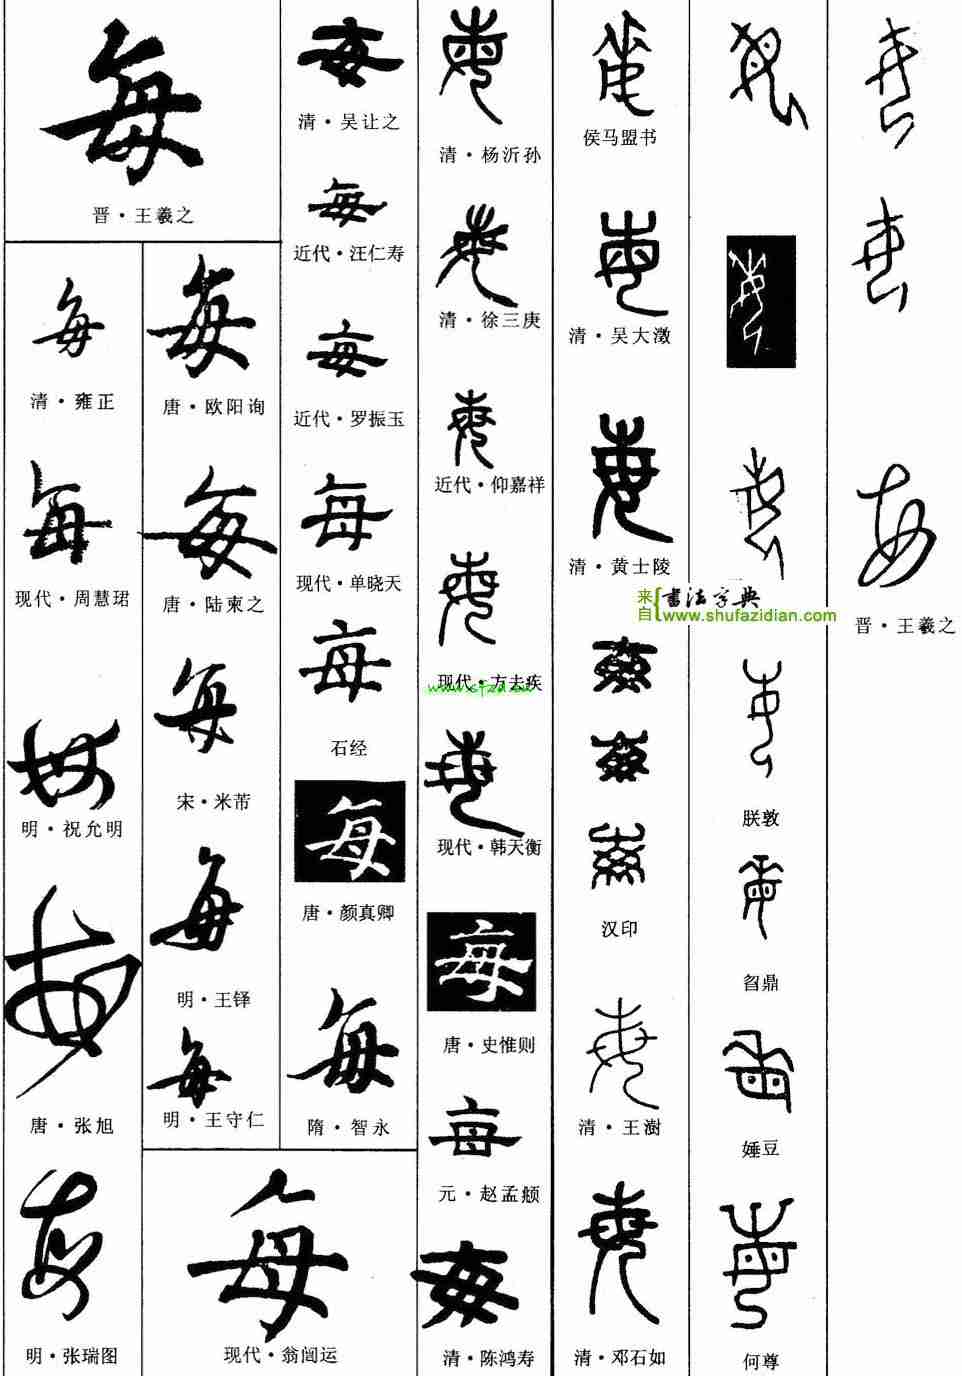 每
晋·王羲之
每
清·雍正
每
现代·周慧珺
每
明·祝允明
每
唐·张旭
每
明·张瑞图
每
唐·欧阳询
每
唐·陆柬之
每
宋·米芾
每
明·王铎
每
明·王守仁
每
现代·翁闿运
每
清·吴让之
每
近代·汪仁寿
每
近代·罗振玉
每
现代·单晓天
每
石经
每
唐·颜真卿
每
隋·智永
每
清·杨沂孙
每
清·徐三庚
每
近代·仰嘉祥
每
现代·方去疾
www.sfzd.cn
每
现代·韩天衡
每
唐·史惟则
每
元·赵孟頫
每
清·陈鸿寿
每
侯马盟书
每
清·吴大澂
每
清·黄士陵
来自{书法字典
www.shufazidian.com
每
每
每
汉印
每
清·王澍
每
清·邓石如
每
每
每
每
朕敦
每
曶鼎
每
娷豆
每
何尊
每
每
每
晋·王羲之